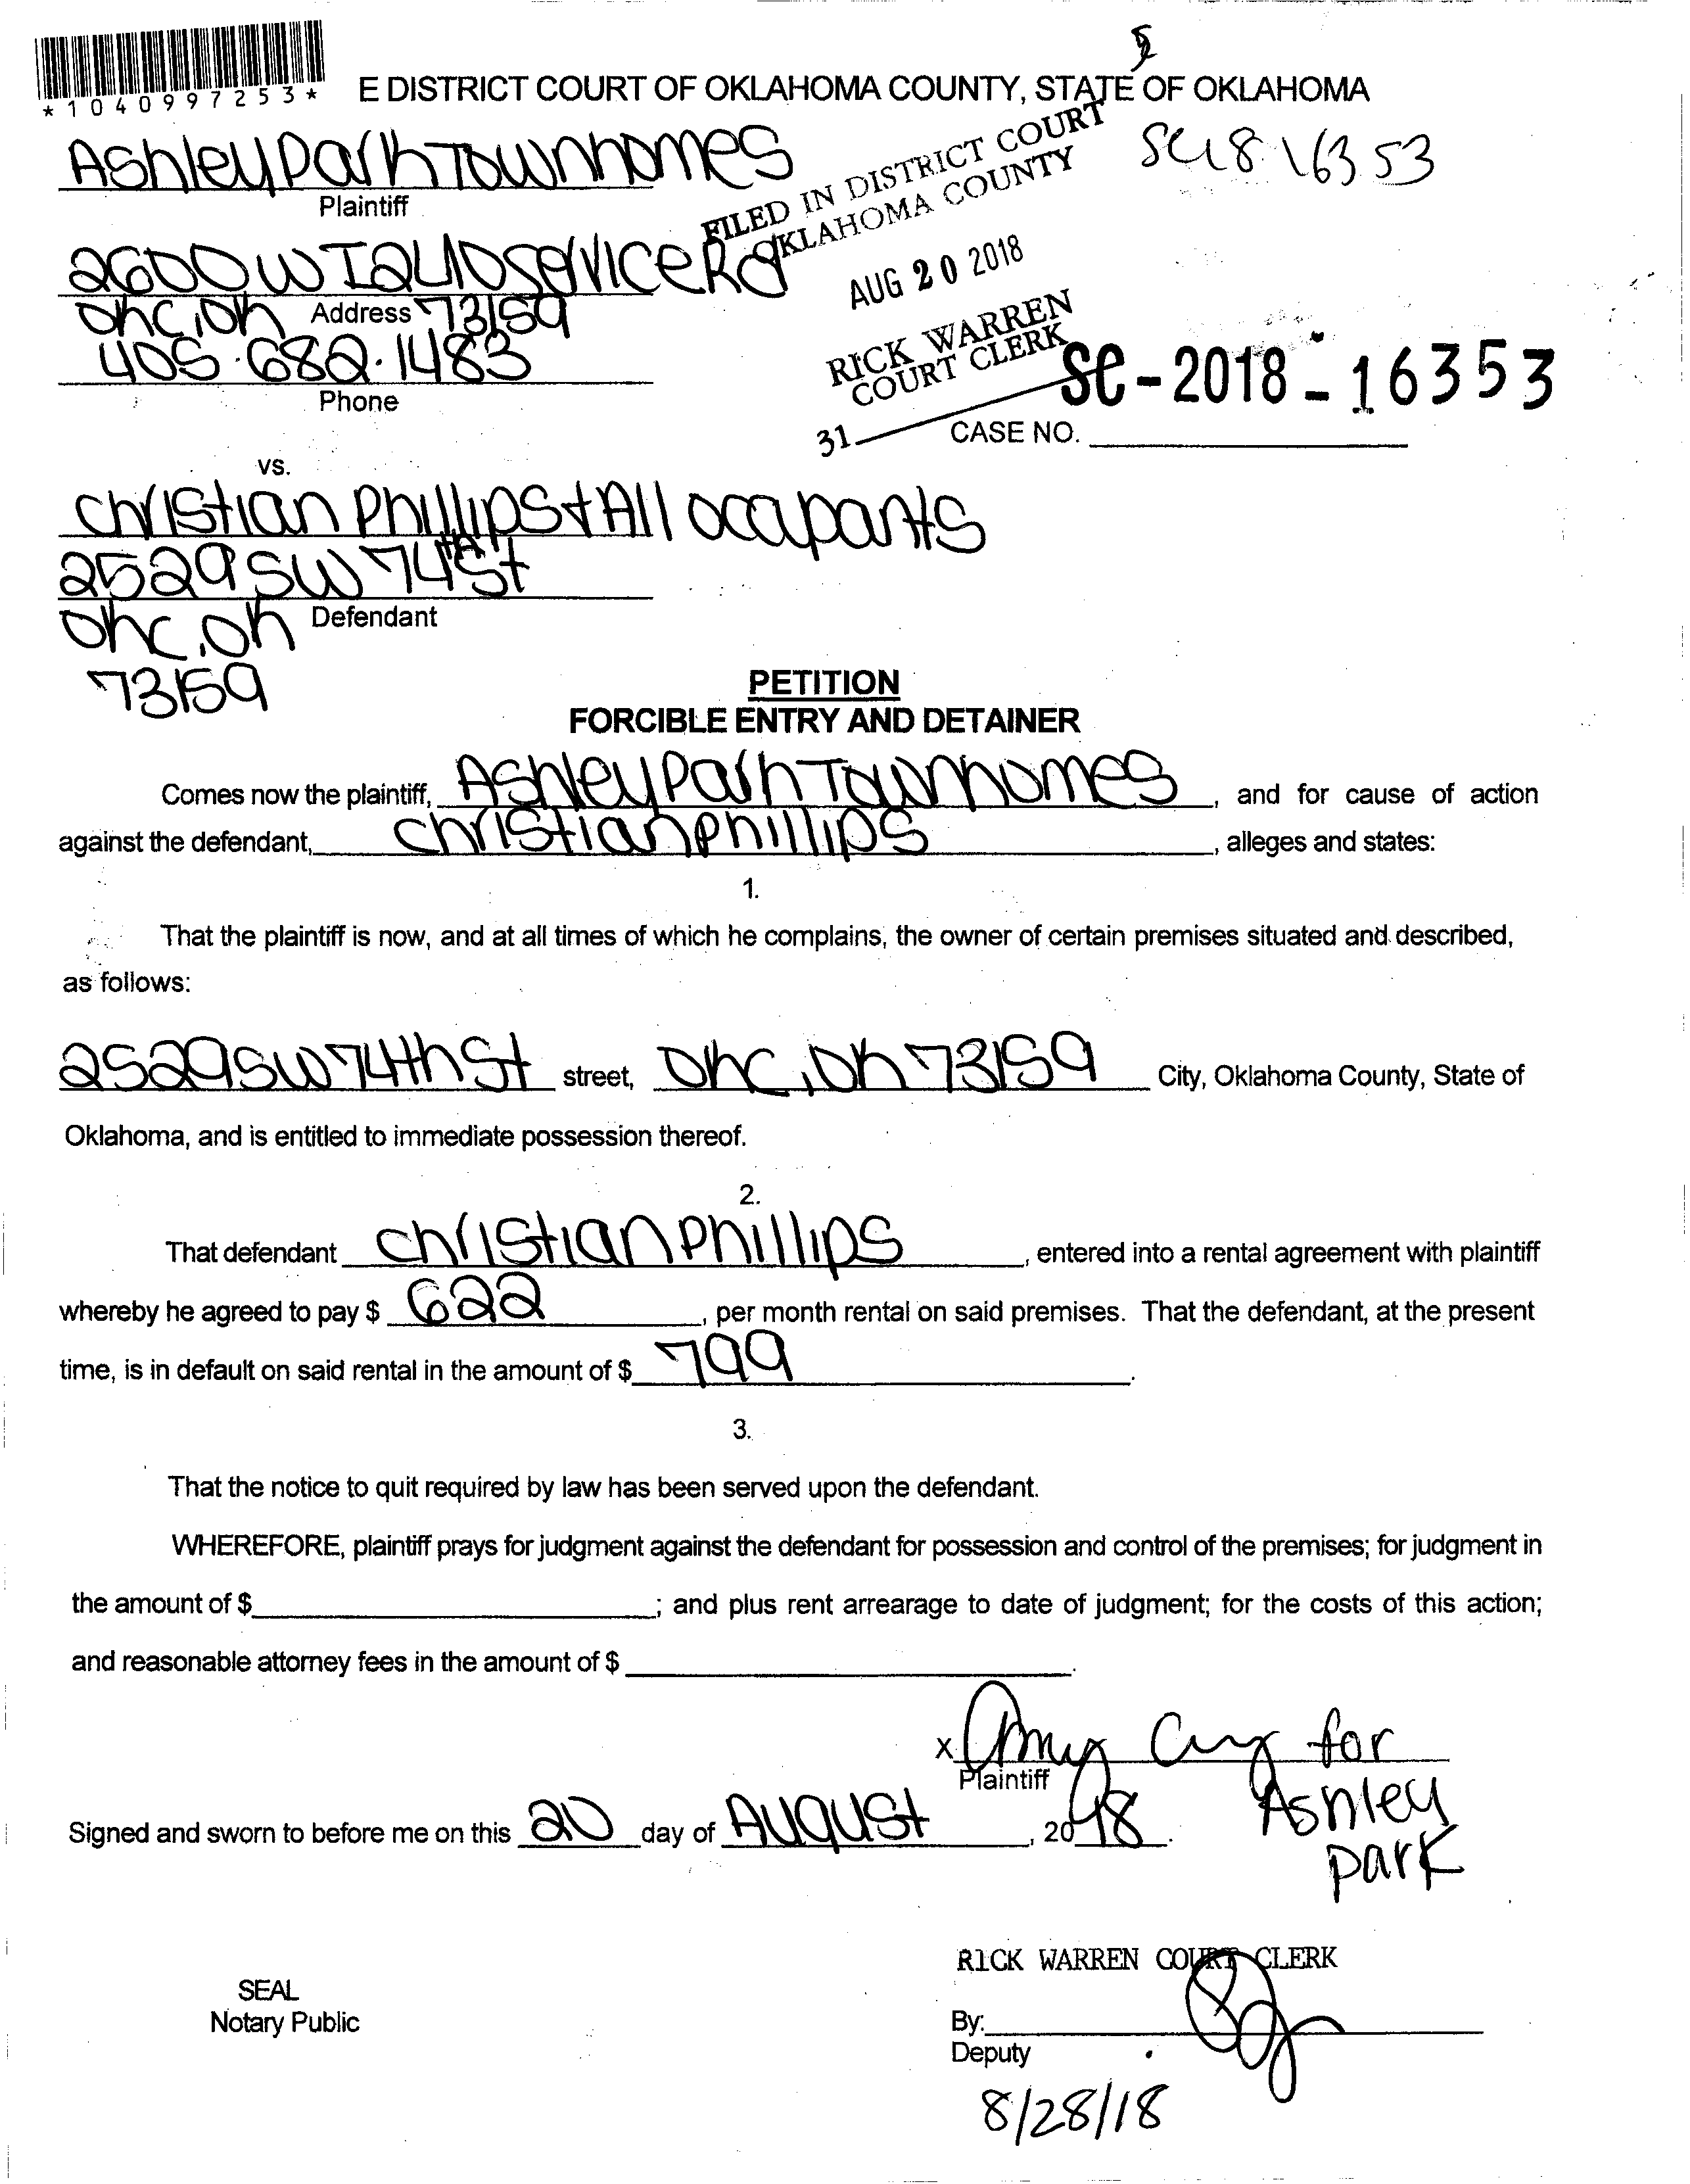 *1040997253*
E DISTRICT COURT OF OKLAHOMA COUNTY, STATE OF OKLAHOMA
Ashley Park Townhomes
Plaintiff
FILED IN DISTRICT COURT
OKLAHOMA COUNTY
SC18 16353
2600 W I240 Service Rd
AUG 20 2018
OKC, OK Address 73159
405.682.1483
Phone
RICK WARREN
COURT CLERK
SC-2018-16353
31
CASE NO.
vs.
Christian Phillips + All occupants
2529 SW 74th St
OKC, OK Defendant
73159
PETITION
FORCIBLE ENTRY AND DETAINER
Comes now the plaintiff, Ashley Park Townhomes, and for cause of action
against the defendant, Christian Phillips, alleges and states:
1.
That the plaintiff is now, and at all times of which he complains, the owner of certain premises situated and described,
as follows:
2529 SW 74th St street, OKC, OK 73159 City, Oklahoma County, State of
Oklahoma, and is entitled to immediate possession thereof.
2.
That defendant Christian Phillips, entered into a rental agreement with plaintiff
whereby he agreed to pay $ 622, per month rental on said premises. That the defendant, at the present
time, is in default on said rental in the amount of $ 799.
3.
That the notice to quit required by law has been served upon the defendant.
WHEREFORE, plaintiff prays for judgment against the defendant for possession and control of the premises; for judgment in
the amount of $ ; and plus rent arrearage to date of judgment; for the costs of this action;
and reasonable attorney fees in the amount of $ .
x Amy for
Plaintiff
Ashley
Park
Signed and sworn to before me on this 20 day of August, 2018.
RICK WARREN COURT CLERK
SEAL
Notary Public
By:
Deputy
8/28/18